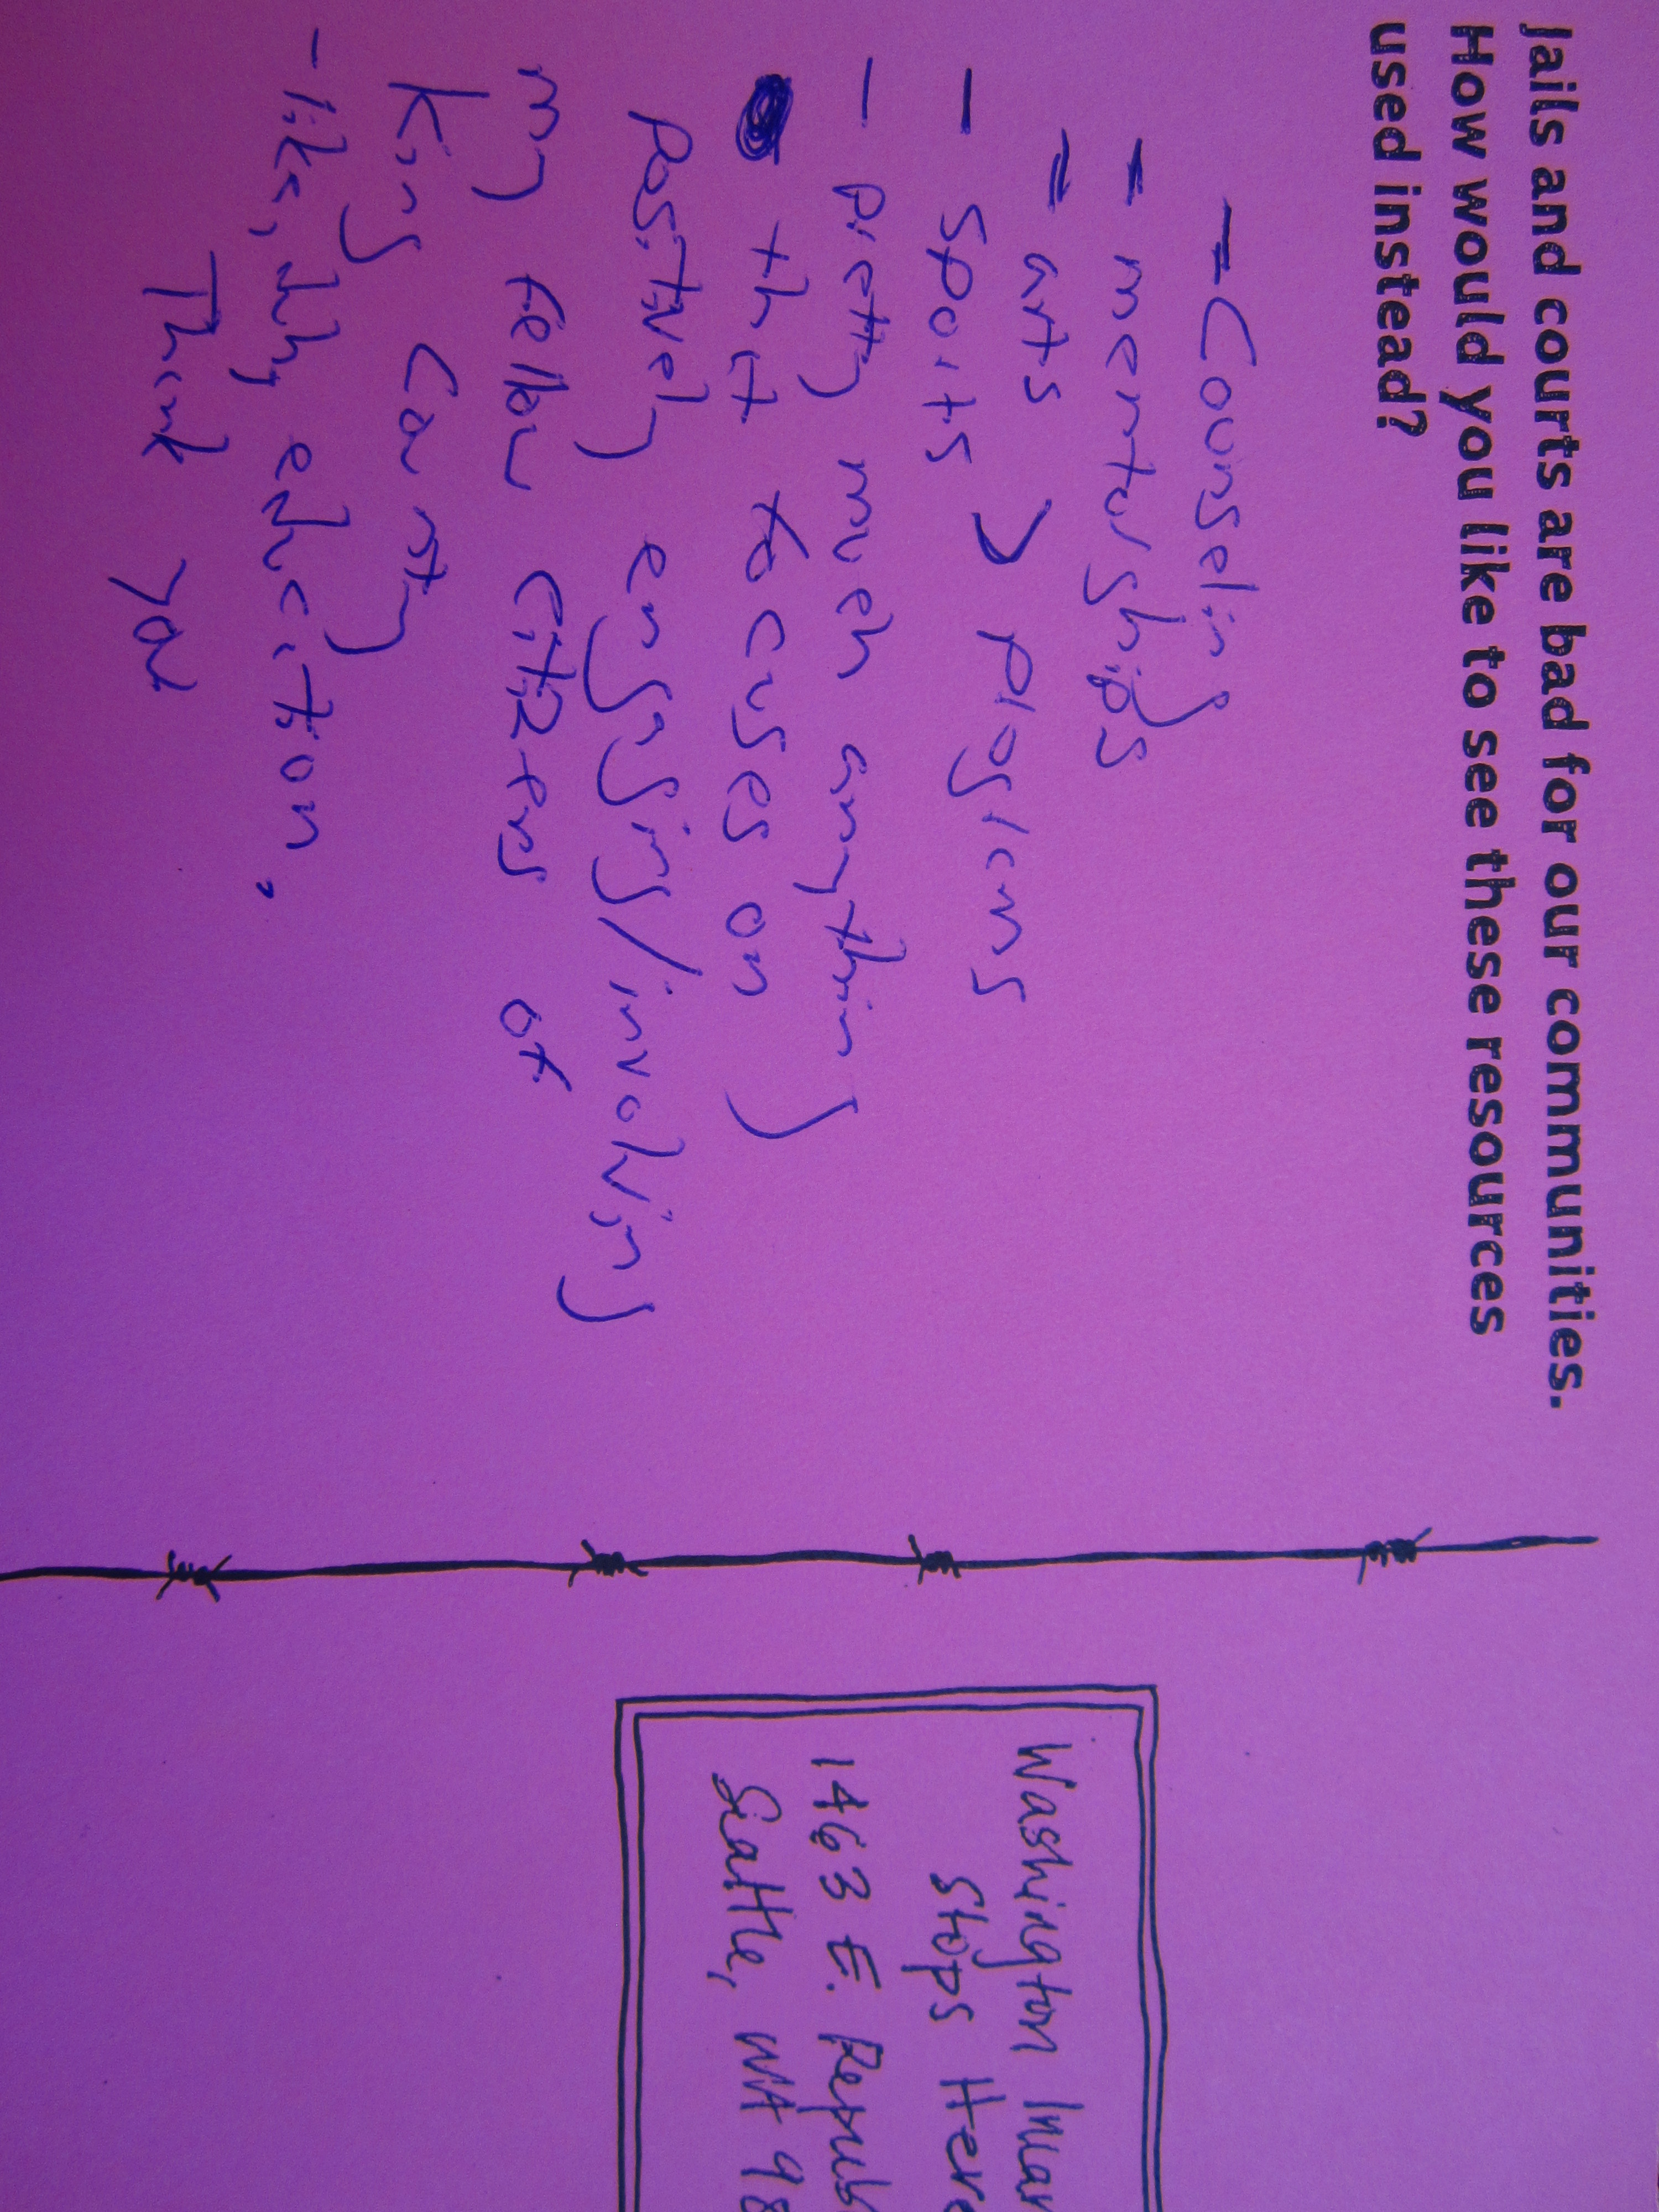 Jails and courts are bad for our communities.
How would you like to see these resources
used instead?
- Counseling
- mentorships
= arts
- sports > programs
- pretty much anything
that focuses on
positively engaging/involving
my fellow citizens of
King County
- like, duh, education.
Thank you
Washington
Stops Here
1463 E. Repub
Seattle, WA 98